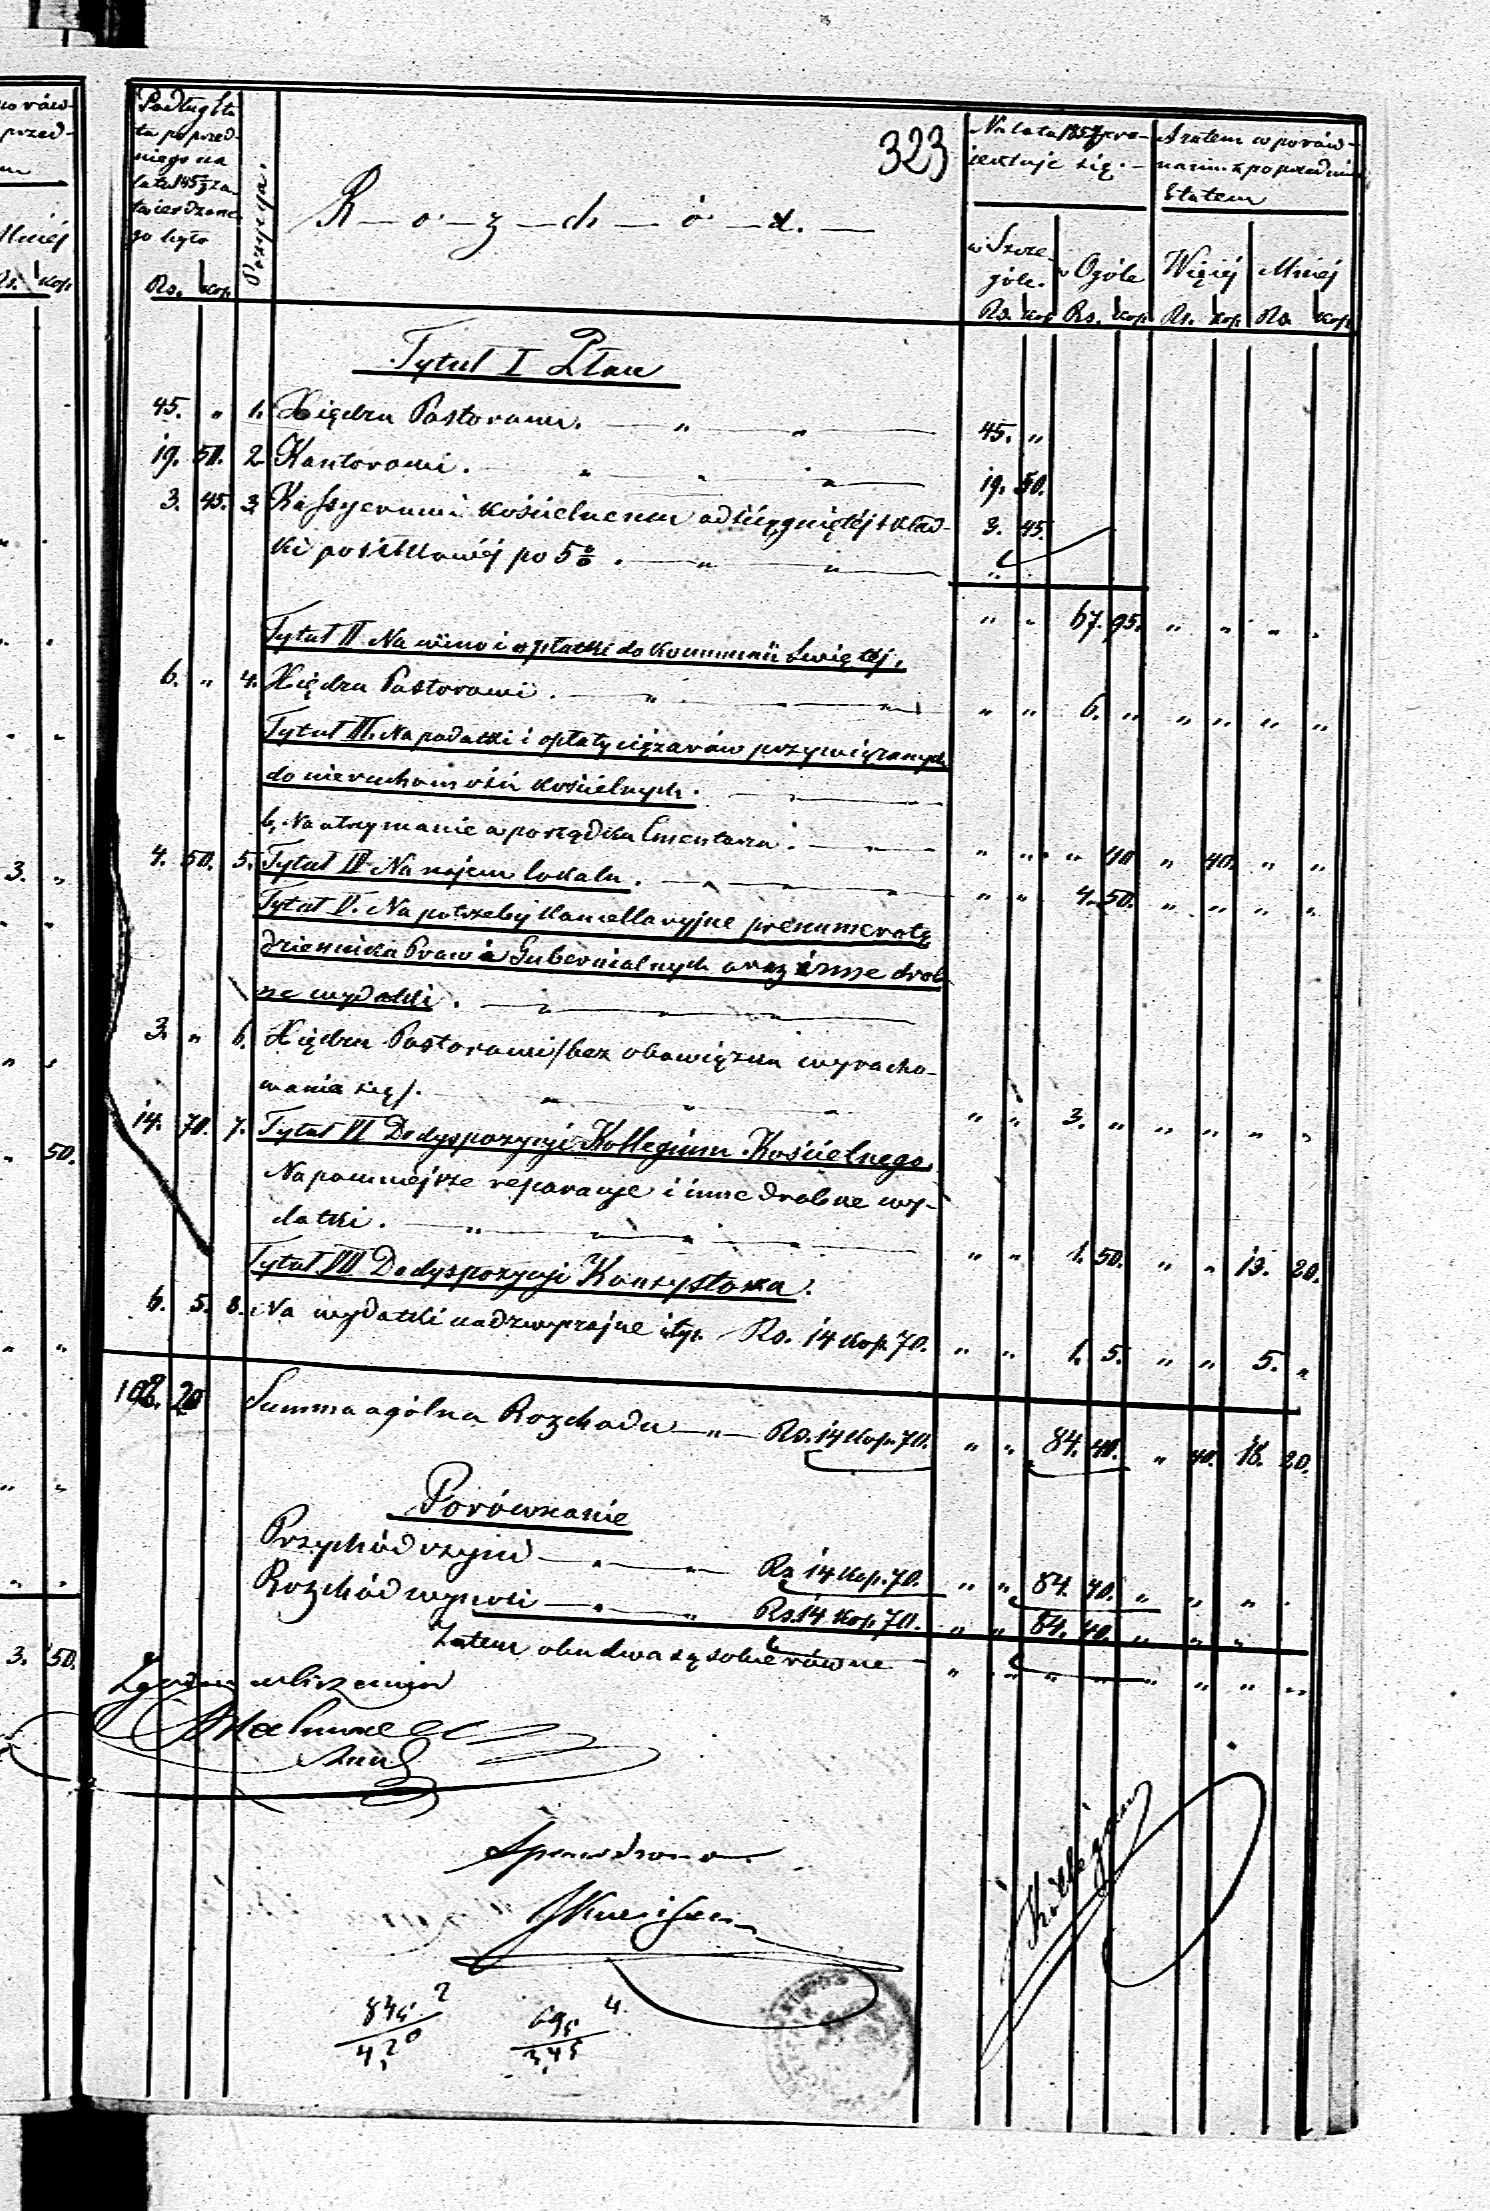 323
Podług Eta
tu poprzed-
niego na
lata za
twierdzone
go było
Rs. kop
Pozycya.
R-o-z-ch-ó-d.
Na lata pro-
iektuje się.
w Szcze-
góle.
w Ogóle
Rs. kop Rs. kop
A zatem w porów-
naniu z poprzednim
Etatem
Więcéj Mniéj
Rs. kop. Rs. kop.
Tytuł I Płace
45. " 1. Xiędzu Pastorowi. " " 45. "
19. 50. 2. Kantorowi. " " " 19. 50.
3. 45. 3. Kassyerowi kościelnemu od ściągniętéj skład- 3. 45.
ki posiłkowéj po 5%. " "
" " 67. 95. " " " "
Tytuł II Na wino i opłatki do kommunii świętéj.
6. " 4. Xiędzu Pastorowi. " " " " " 6. " " " " "
Tytuł III. Na podatki i opłaty ciężarów przywiązanych
do nieruchomości kościelnych.
b, Na utrzymanie w porządku Cmentarza. " " " 40 " 40. " "
4. 50. 5. Tytuł IV Na najem lokalu. " " 4. 50. " " " "
Tytuł V. Na potrzeby kancellaryjne prenumeratę
dziennika Praw i Gubernialnych oraz inne drob
ne wydatki.
3. " 6. Xiędzu Pastorowi /bez obowiązku wyracho-
wania się/. " " " " " 3. " " " " "
14. 70. 7. Tytuł VI Do dyspozycyi Kollegium Kościelnego.
Na pomniejsze reparacye i inne drobne wy-
datki. " " " " " " 1. 50. " " 13. 20.
Tytuł VII Do dyspozycyi Konsystorza.
6. 5. 8. Na wydatki nadzwyczajne itp. Rs. 14 kop. 70. " " 1. 5. " " 5. "
102. 20 Summa ogólna Rozchodu " Rs. 14 kop. 70. " " 84. 40. " 40. 18. 20.
Porównanie
Przychód czyni " " Rs 14 kop. 70. " " 84. 40. " " " "
Rozchód wynosi " " Rs. 14 kop. 70. " " 84. 40. " " "
Zatem obudwa są sobie równe " " " " " " " "
Zgodno
Sprawdzono
845 2
4,20
695 4.
3,45
3. "
" 50.
3. 50.
Mniéj
Rs. kop